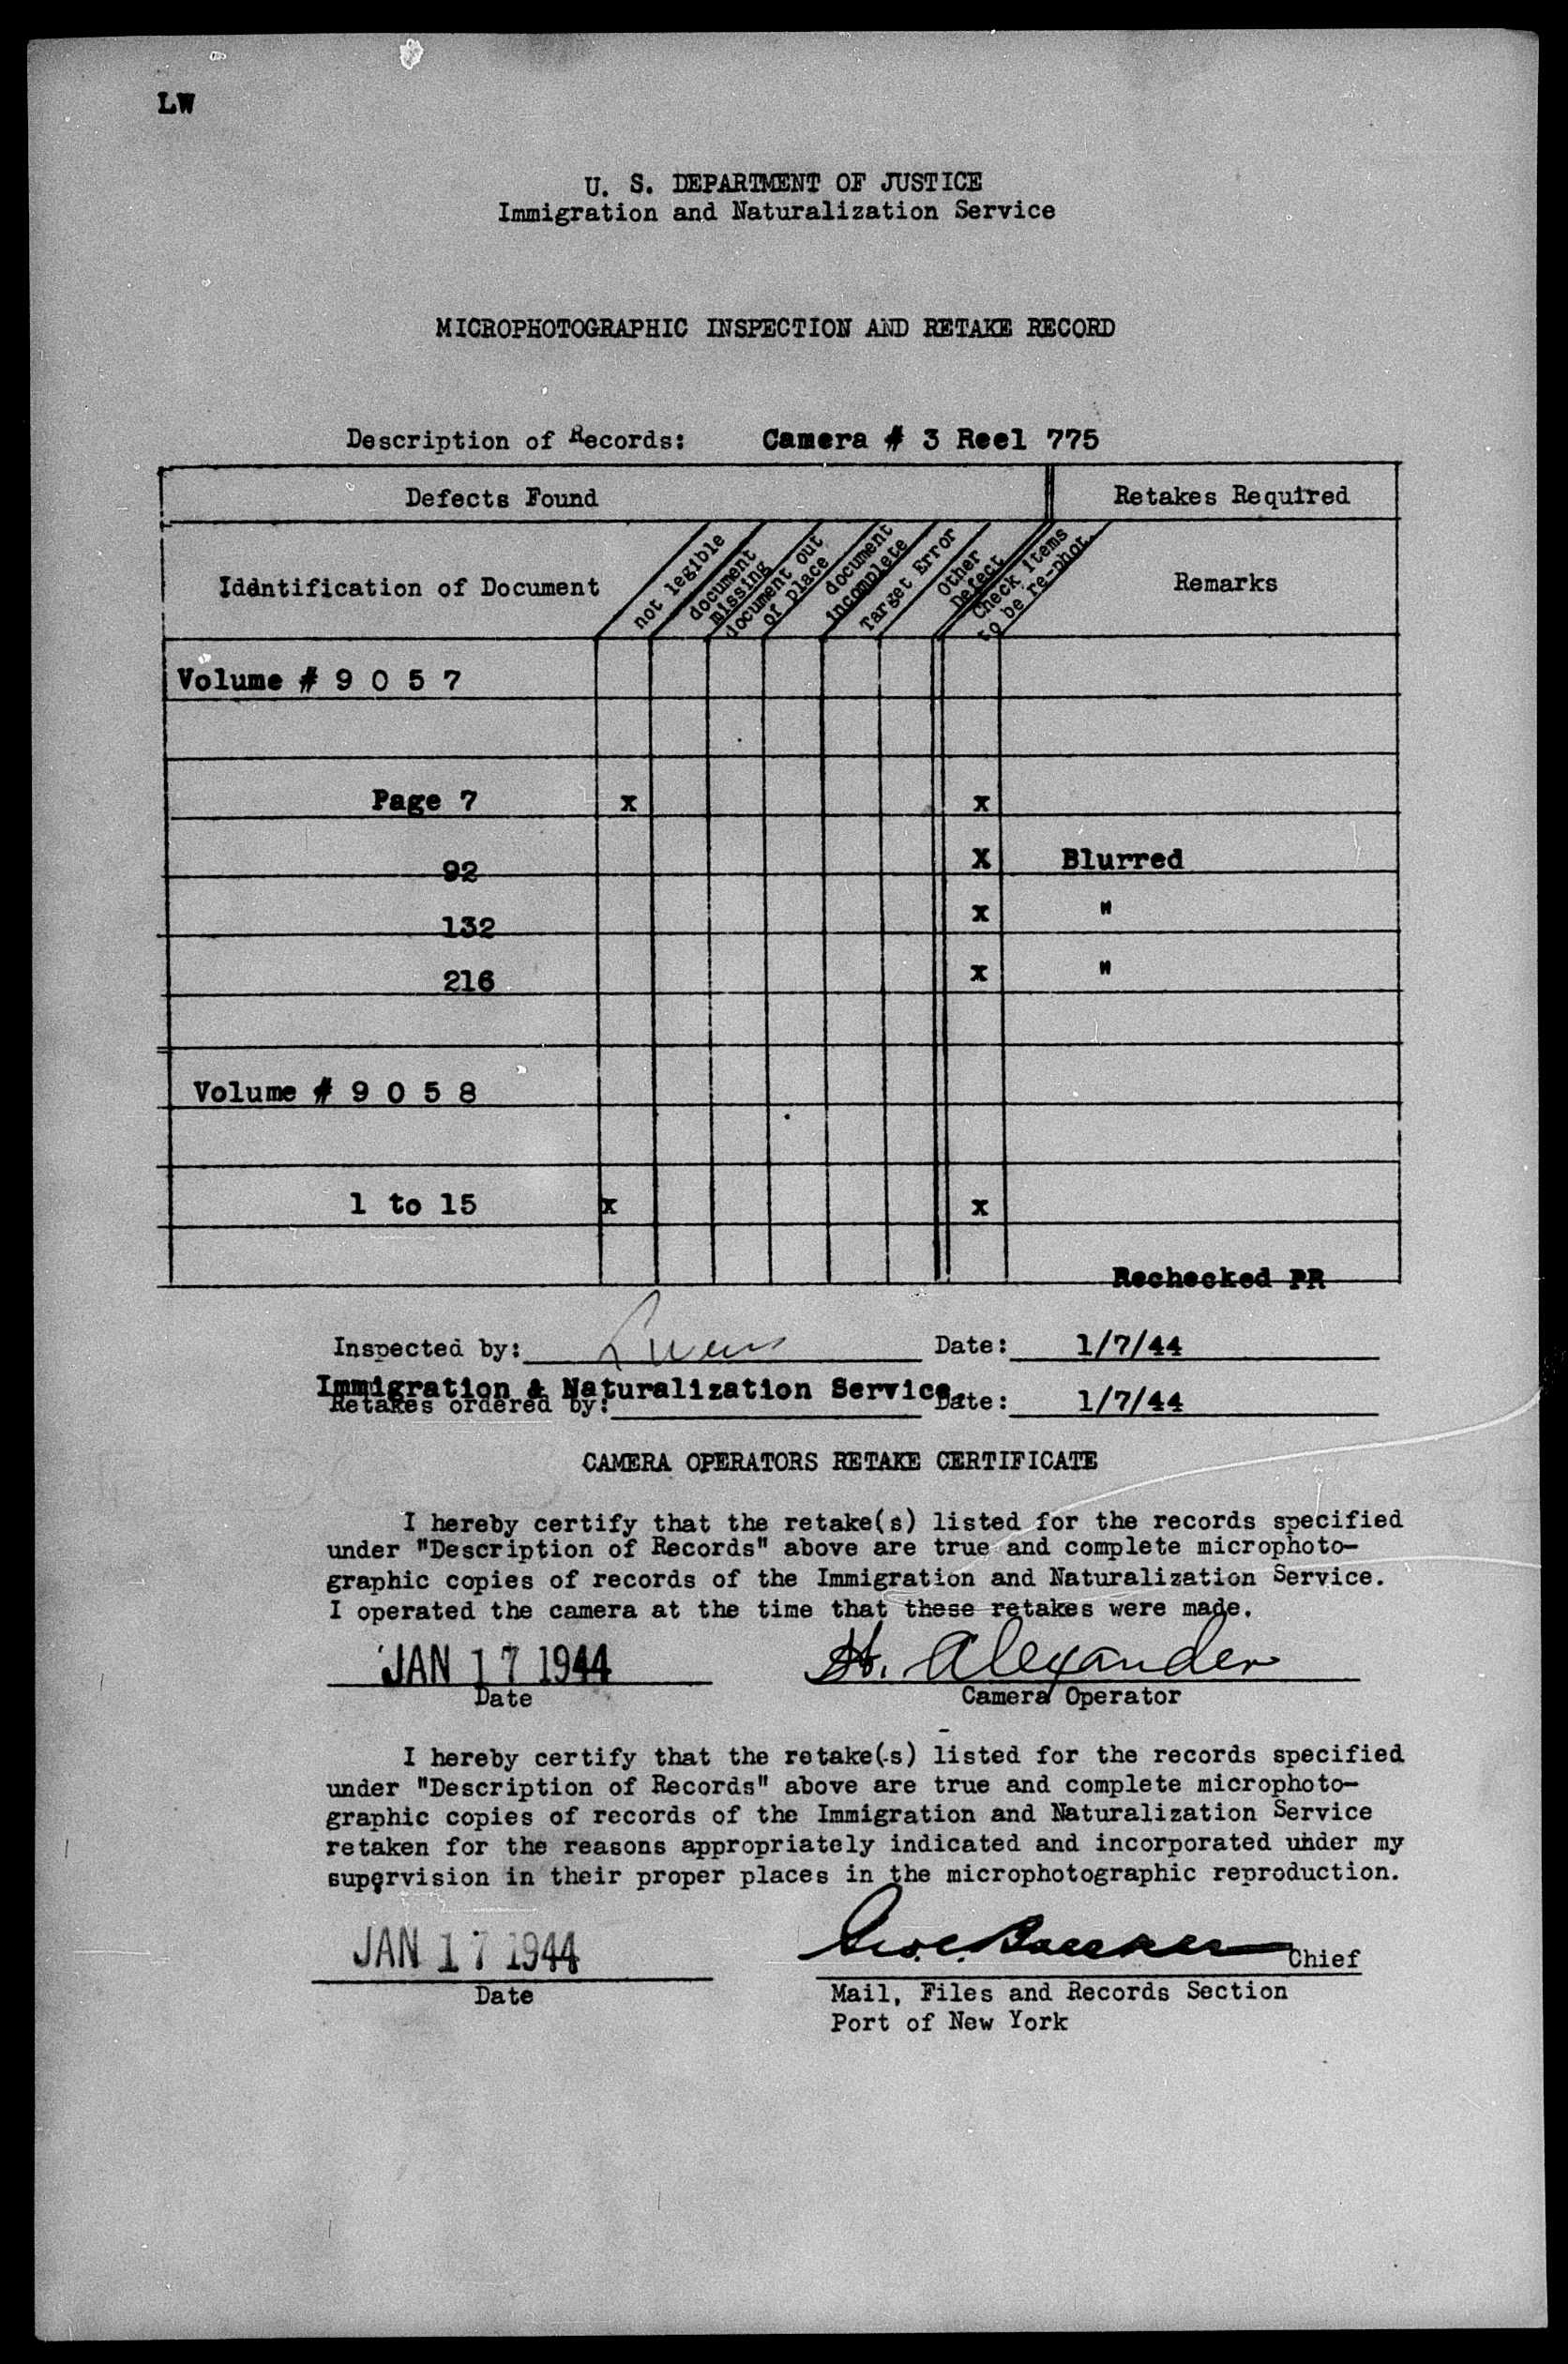 LW
U. S. DEPARTMENT OF JUSTICE
Immigration and Naturalization Service
MICROPHOTOGRAPHIC INSPECTION AND RETAKE RECORD
Description of Records: Camera # 3 Reel 775
Defects Found Retakes Required
Identification of Document
not legible
document missing
document out of place
document incomplete
Target Error
Other Defect
Check items to be re-phot.
Remarks
Volume # 9 0 5 7
Page 7 x x
92 X Blurred
132 x "
216 x "
Volume # 9 0 5 8
1 to 15 x x
Rechecked PR
Inspected by: Date: 1/7/44
Immigration & Naturalization Service.
Retakes ordered by: Date: 1/7/44
CAMERA OPERATORS RETAKE CERTIFICATE
I hereby certify that the retake(s) listed for the records specified
under "Description of Records" above are true and complete microphoto-
graphic copies of records of the Immigration and Naturalization Service.
I operated the camera at the time that these retakes were made.
JAN 17 1944 H. Alexander
Date Camera Operator
I hereby certify that the retake(s) listed for the records specified
under "Description of Records" above are true and complete microphoto-
graphic copies of records of the Immigration and Naturalization Service
retaken for the reasons appropriately indicated and incorporated under my
supervision in their proper places in the microphotographic reproduction.
JAN 17 1944 Chief
Date Mail, Files and Records Section
Port of New York